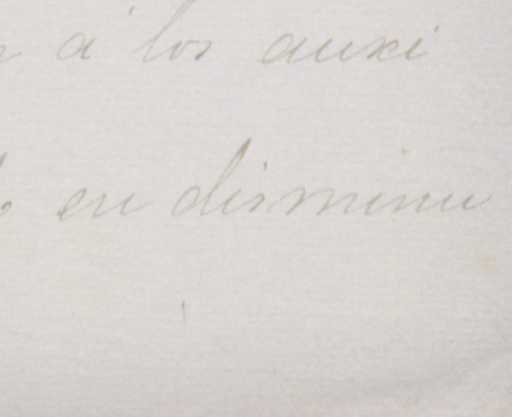 á los auxi
en disminu